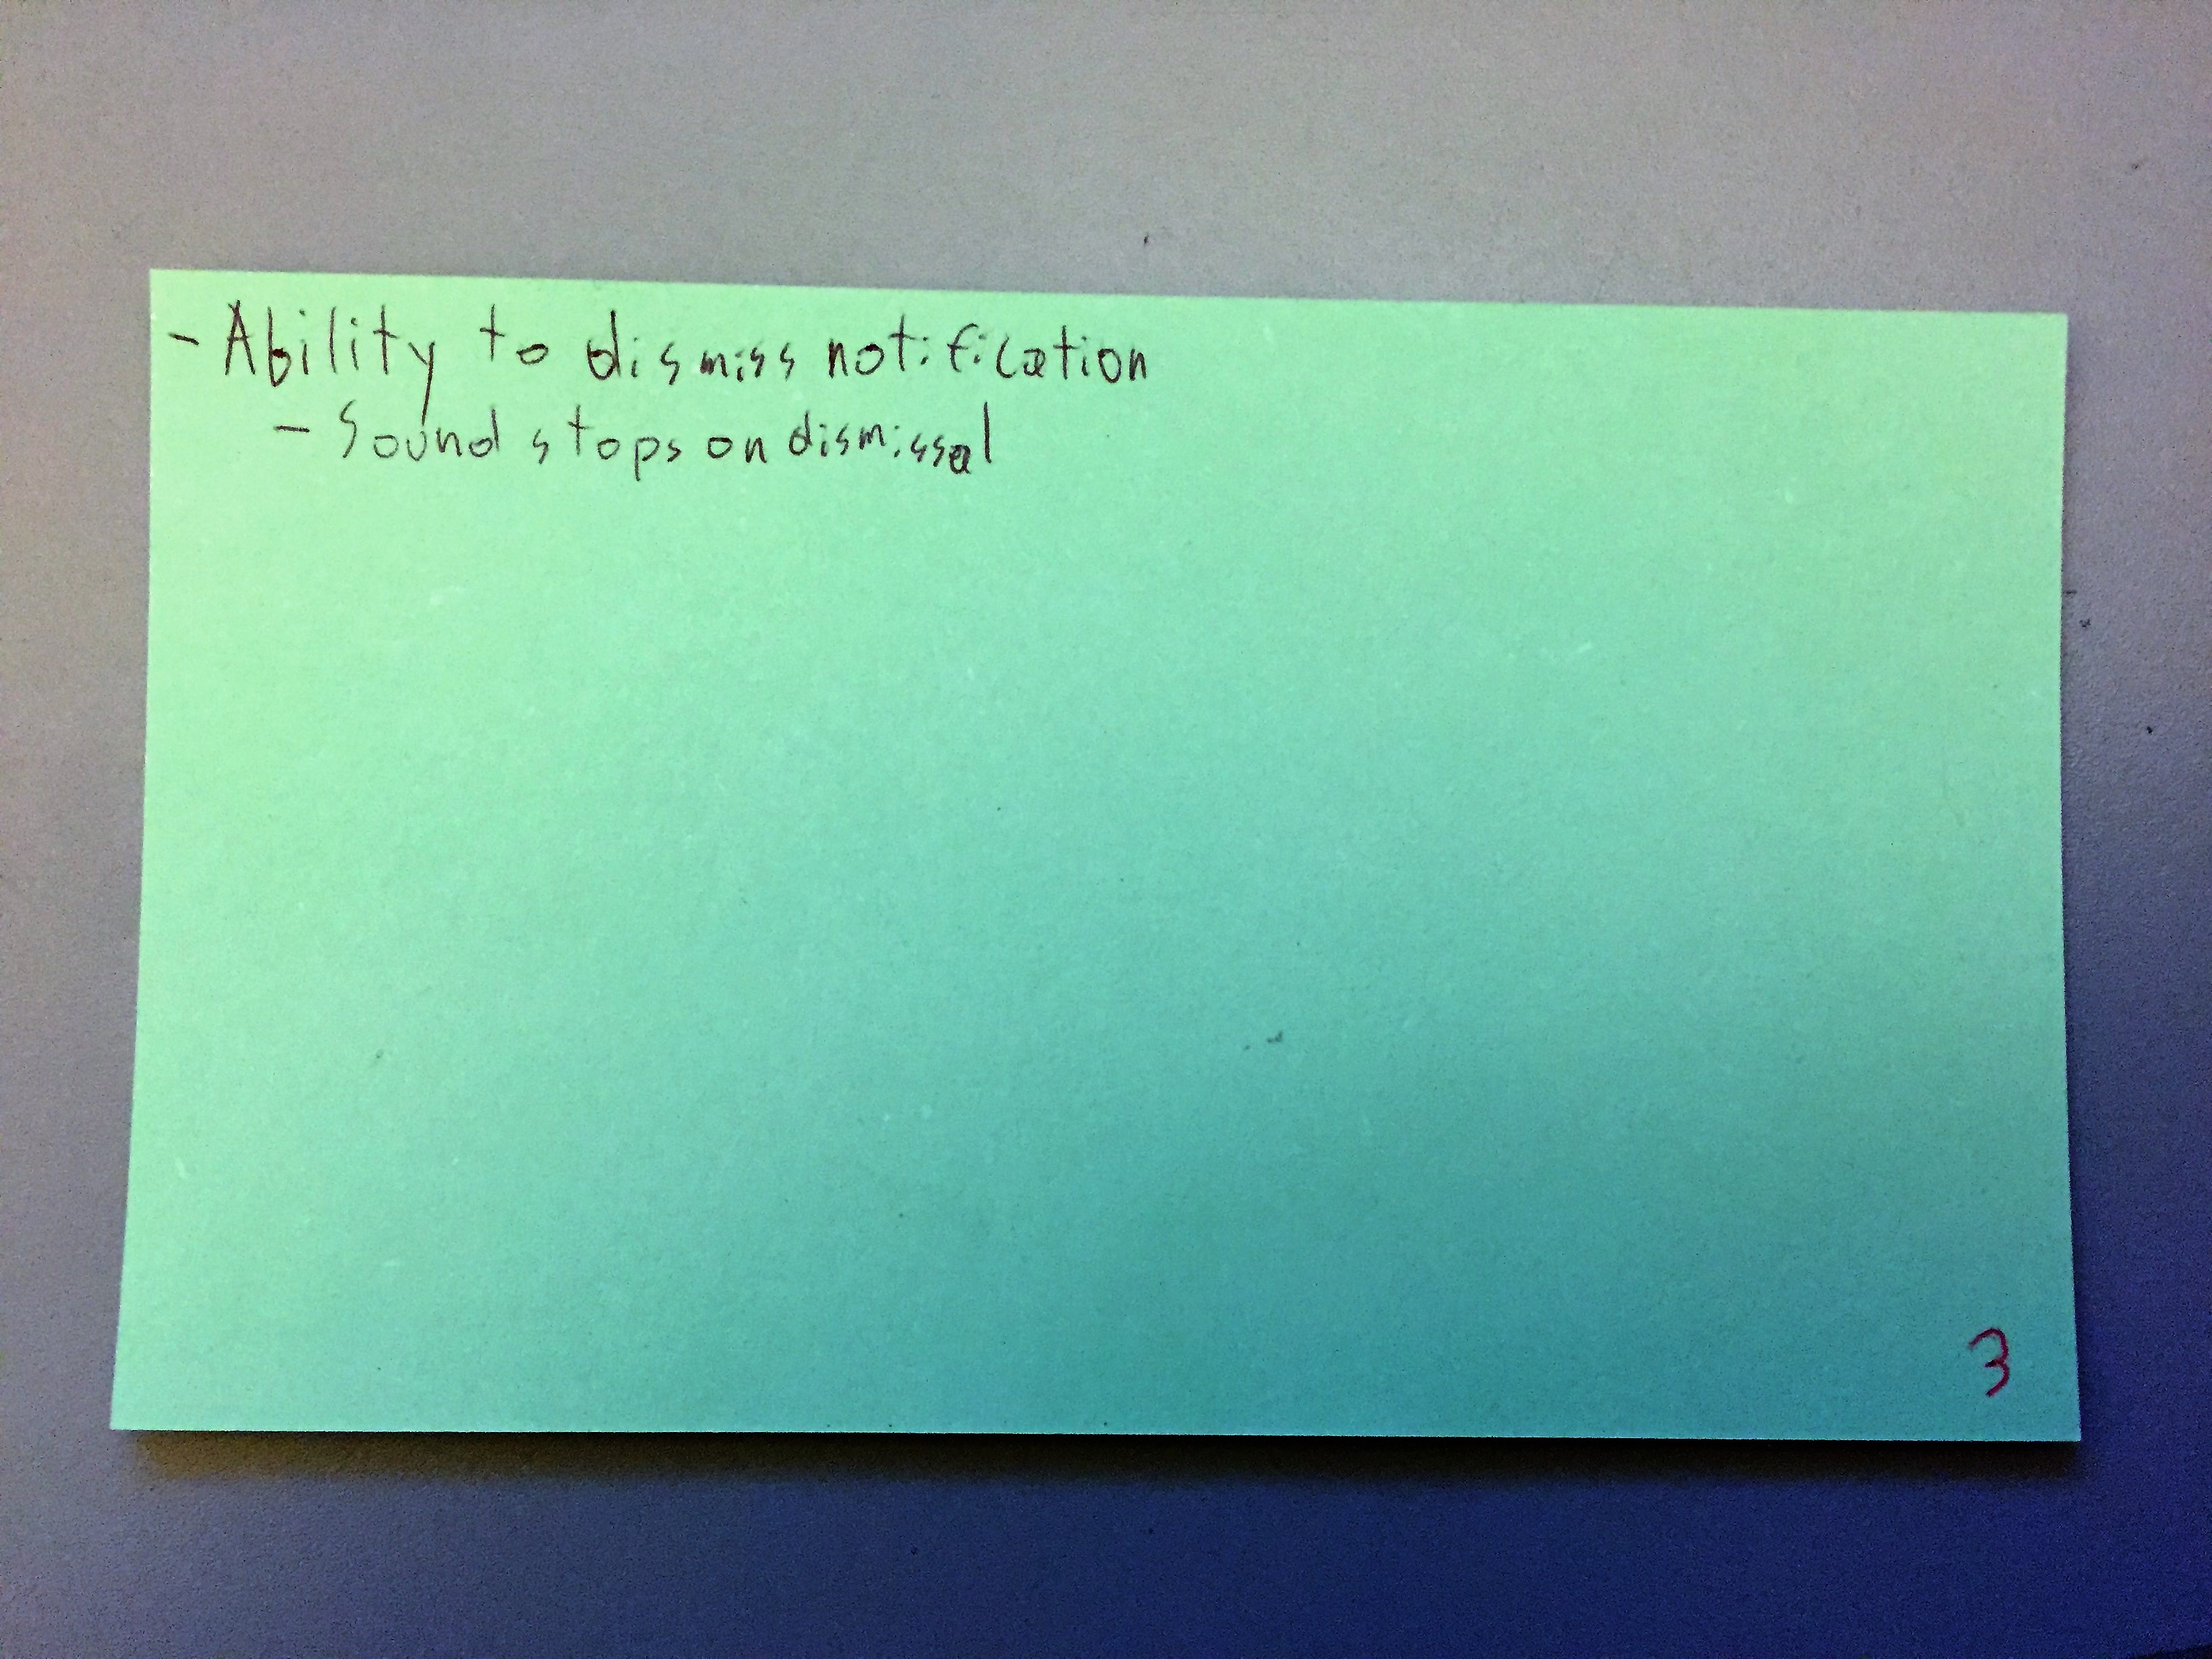 - Ability to dismiss notification
- Sound stops on dismissal
3